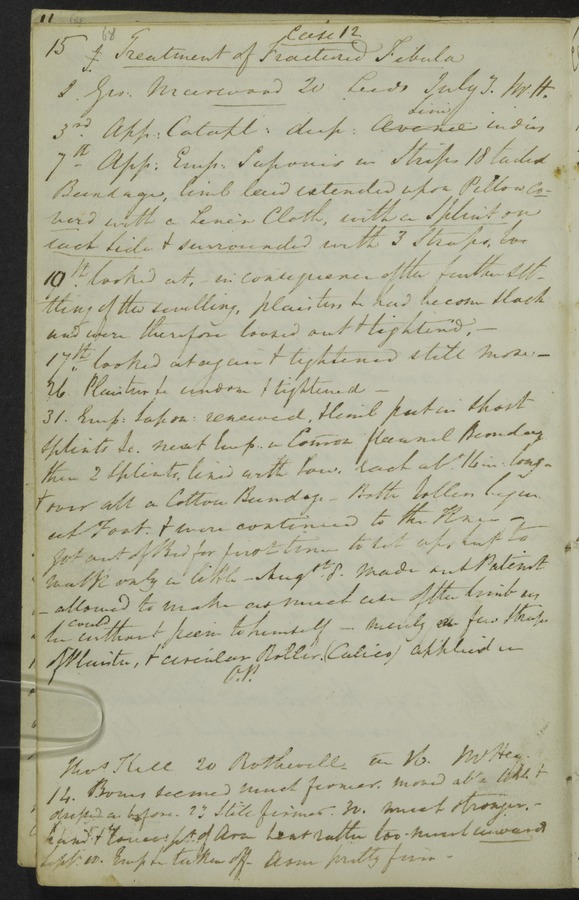 11
68
Case 12
15 Treatment of Fractured Fibula
Geo: 20 Leeds July 3. Mr H.
Lini
3rd App: Catapl: deup: Avenae in dies
7th App: Emp: Saponis in Strips 18 tailed
Bandage, limb laid extended upon Pillow co-
verd with a Linen Cloth, with a Splint on
each side & surrounded with 3 Straps,
10th looked at, - in consequence of the further set-
tling of the swelling, plaisters &c had become slack
and were therefore loosed out & tightend, -
17th looked at again & tightened still more -
26. Plaister &c undone & tightened -
31. Emp: Sapon: renewed, & limb put in short
splints &c. next Emp. a Common flannel Bandage
then 2 splints, lined with tow, each abt. 16 in. long -
& over all a Cotton Bandage - Both rollers began
at Foot. & were continued to the Knee -
Got out of Bed for first time to set up, but to
walk only a little - Augst 8. made out Patient
- allowed to make as much use of the limb as
he could without pain to himself - merely a few straps
of Plaister, & circular Roller (Calico) applied
O.P.
Thos 20 Rothwell Mr Hey.
14. Bones seemed much firmer. moved abt a little &
as before. 23 still firmer. much stronger. -
hand & lower pt. of Arm bent rather too much inward
Sept. 10. Emp &c taken off. Arm pretty firm -